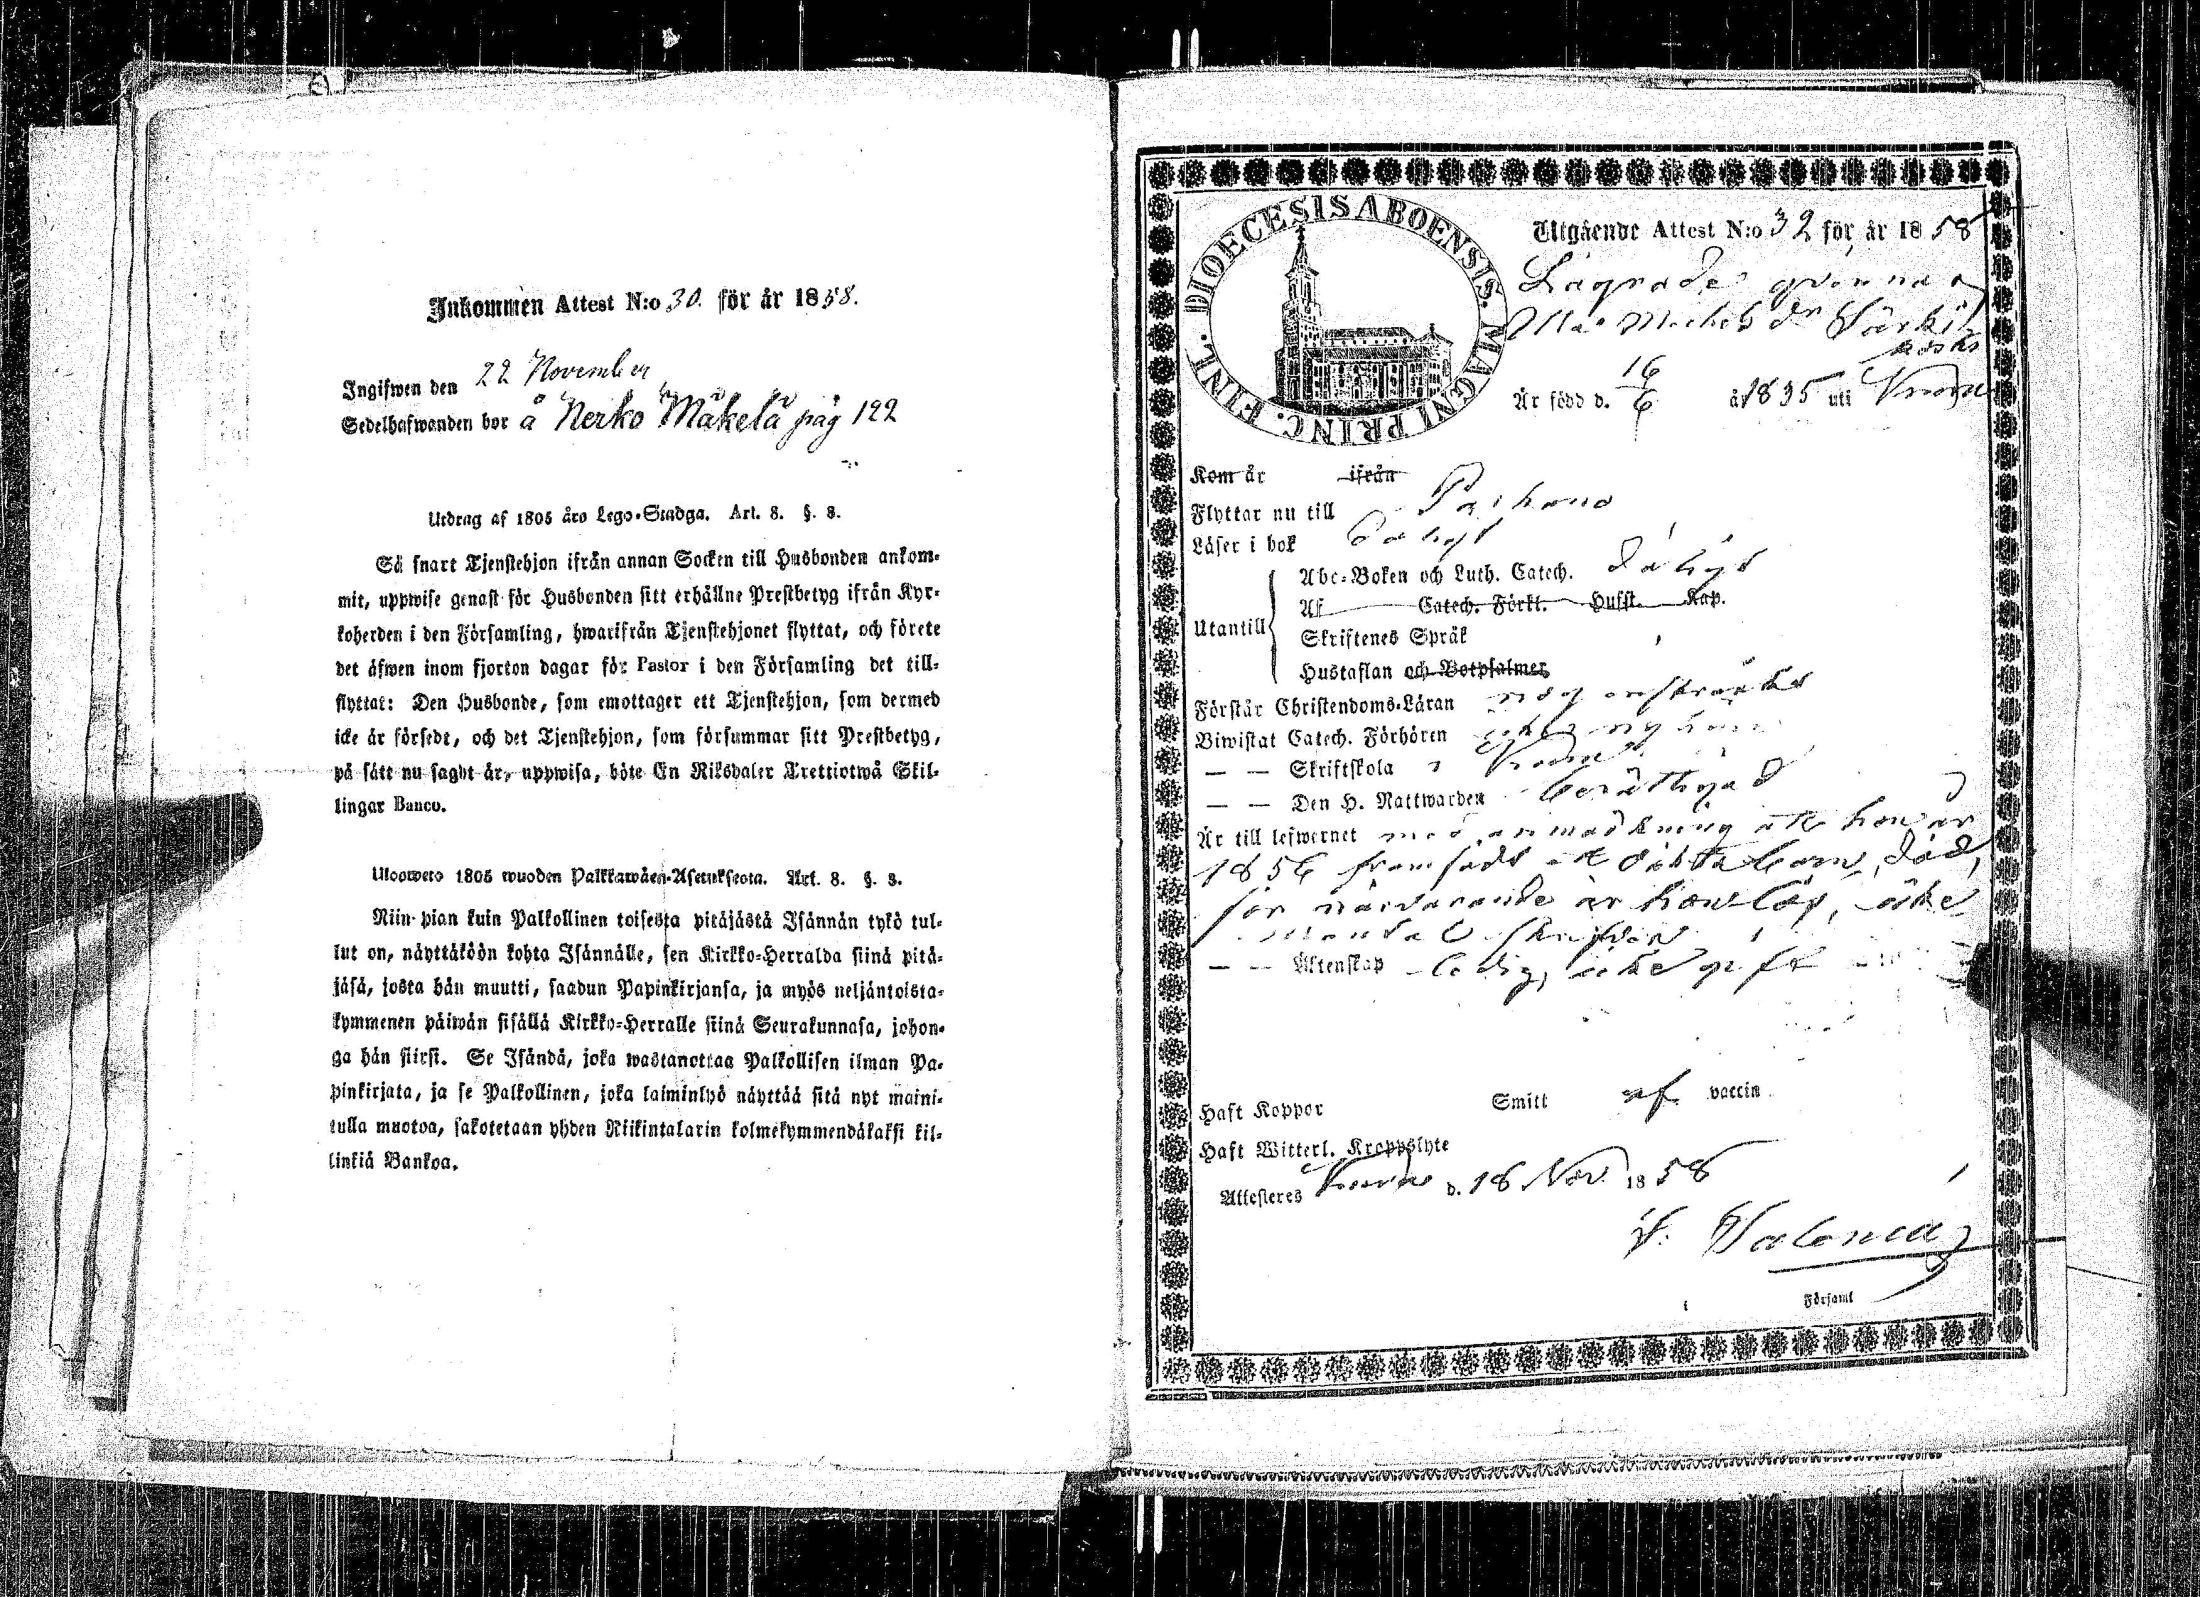 Inkommen Attest N:o 30. för år 1858.
Ingifwen den 22 November
Sedelhafwanden bor å Nerko Mäkelä pag 122
Utdrag af 1805 års Lego-Stadga. Art. 8. §. 8.
Så snart Tjenstehjon ifrån annan Socken till Husbonden ankom-
mit, uppwise genast för Husbonden sitt erhållne Prestbetyg ifrån Kyr-
koherden i den Församling, hwarifrån Tjenstehjonet flyttat, och förete
det äfwen inom fjorton dagar för Pastor i den Församling det till-
flyttat: Den Husbonde, som emottager ett Tjenstehjon, som dermed
icke är försedt, och det Tjenstehjon, som försummar sitt Prestbetyg,
på sätt nu sagdt är, uppwisa, böte En Riksdaler Trettiotwå Skil-
lingar Banco.
Uloswets 1805 wuoden Palkkawäen-Asetuksesta. Art. 8. §. 8.
Niin pian kuin Palkollinen toisesta pitäjästä Isännän tykö tul-
lut on, näyttäköön kohta Isännälle, sen Kirkko-Herralda siinä pitä-
jäsä, josta hän muutti, saadun Papinkirjansa, ja myös neljäntoista-
kymmenen päiwän sisällä Kirkko-Herralle siinä Seurakunnasa, johon-
ga hän siirsi. Se Isändä, joka wastanottaa Palkollisen ilman Pa-
pinkirjata, ja se Palkollinen, joka laiminlyö näyttää sitä nyt maini-
tulla muotoa, sakotetaan yhden Riikintalarin kolmekymmendäkaksi kil-
linkiä Bankoa.
DIOECESIS ABOENSIS. MAGNI PRINC. FINL.
Utgående Attest N:o 32 för år 1858
Lägrade qvinnan
Är född d. 16/6 år 1835 uti
Kom år ifrån
Flyttar nu till
Läser i bok dåligt
Abc-Boken och Luth. Catech. dåligt
Af Catech. Förkl. Hufst. Kap.
Utantill
Skriftenes Språk
Hustaflan och Botpsalmer
Förstår Christendoms-Läran
Biwistat Catech. Förhören
— — Skriftskola
— — Den H. Nattwarden berättigad
Är till lefwernet med anmärkning att hon år
1856 framfödt ett oäkta barn, död,
för närvarande är hon lös, icke
mantalsskrifven
— — Äktenskap ledig, icke gift
Haft Koppor Smitt af vaccin
Haft Witterl. Kroppslyte
Attesteres d. 18 Nov. 1858
i Församl